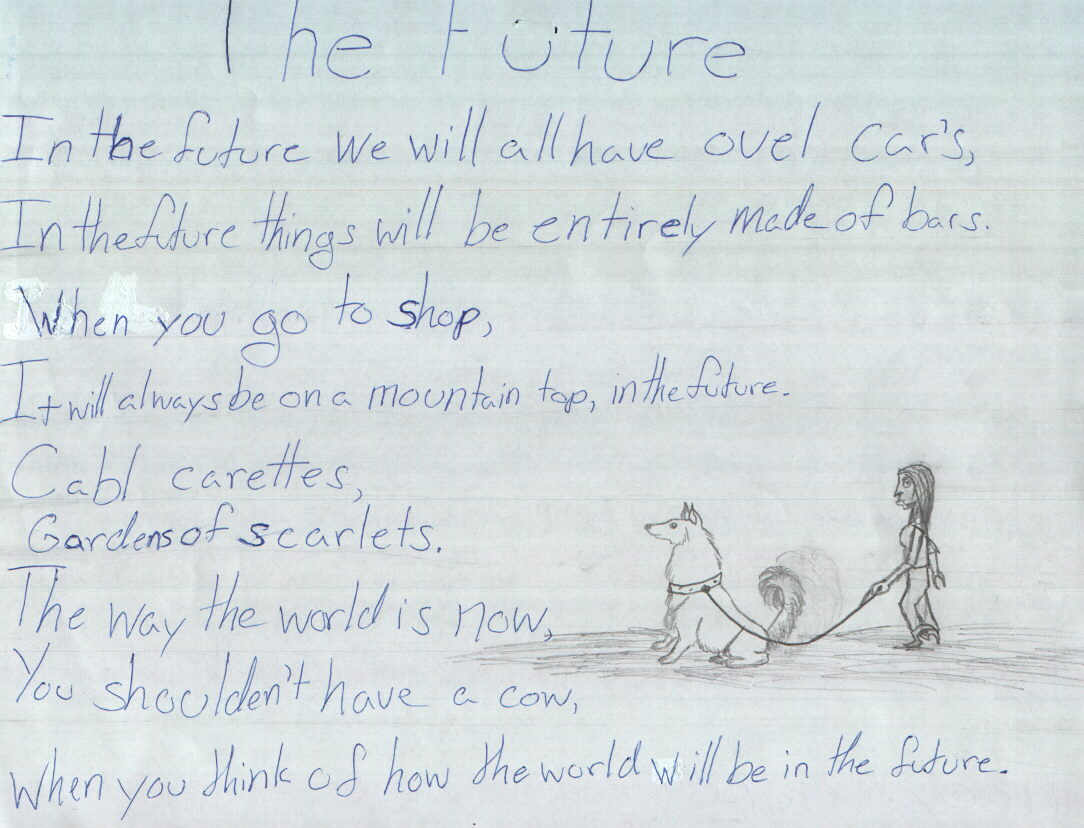 The Future
In the future we will all have ovel car's,
In the future things will be entirely made of bars.
When you go to shop,
It will always be on a mountain top, in the future.
Cabl carettes,
Gardens of scarlets.
The way the world is now,
You shoulden't have a cow,
When you think of how the world will be in the future.